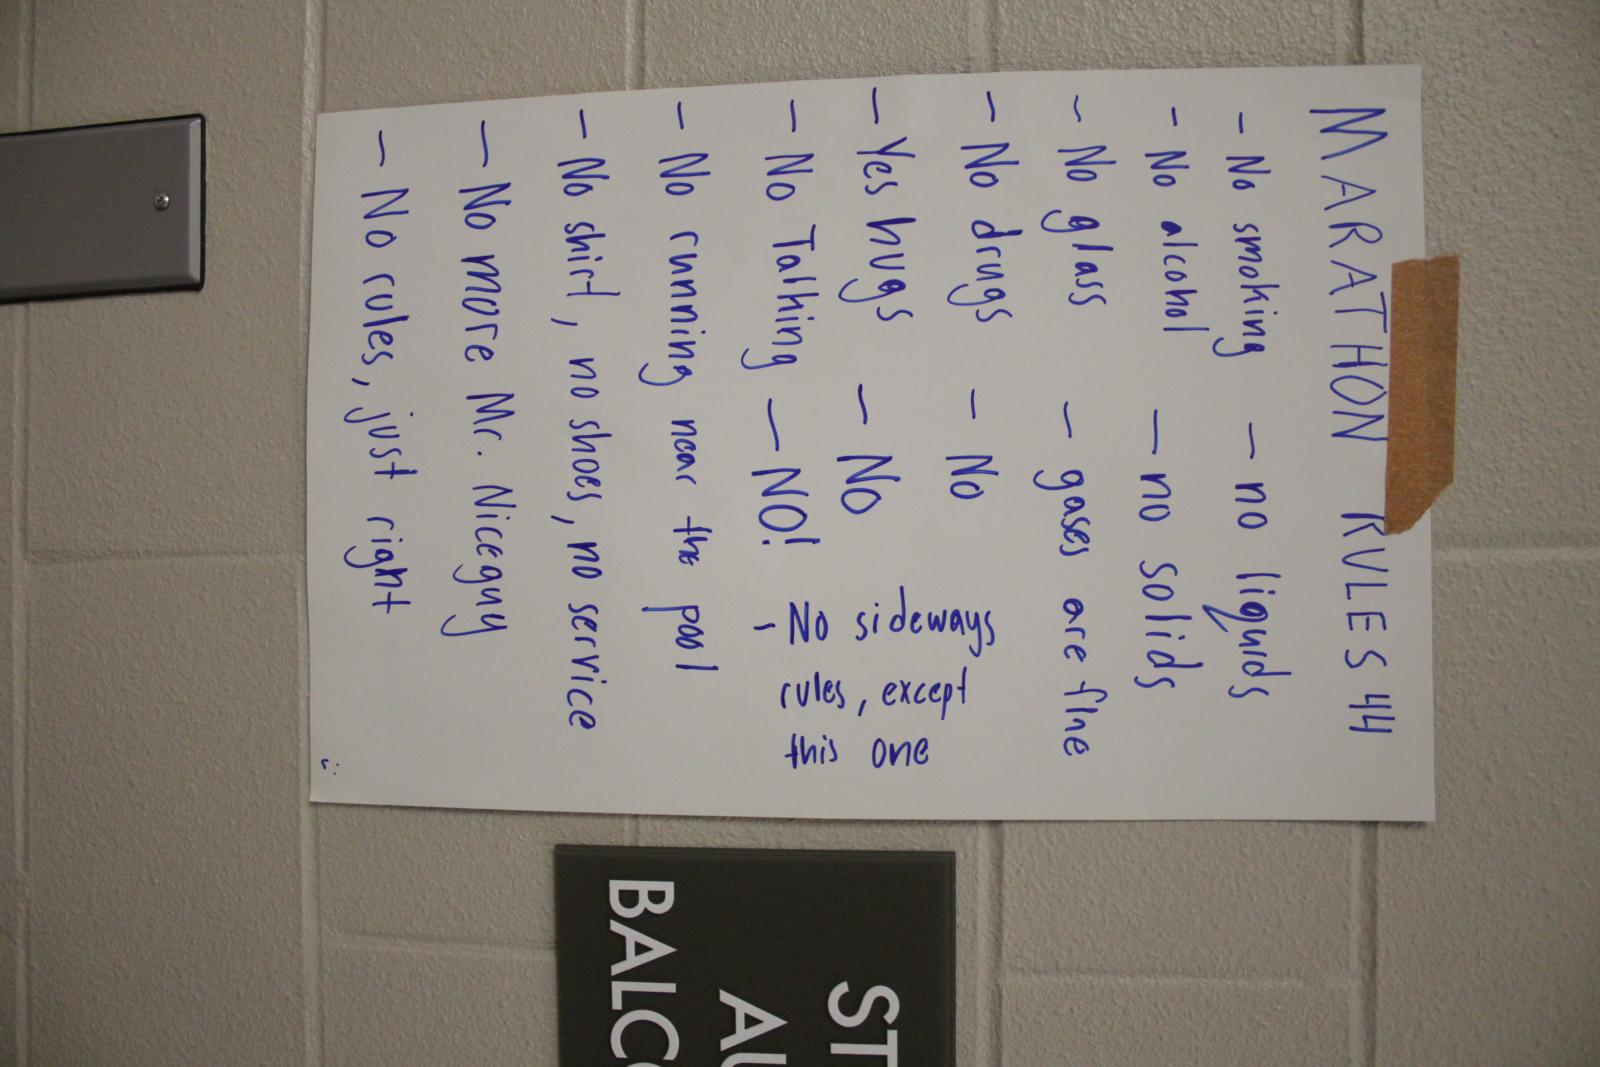 MARATHON RULES 44
- No smoking - no liquids
- No alcohol - no solids
- No glass - gases are fine
- No drugs - No
- Yes hugs - No
- No Talking - NO!
- No sideways
rules, except
this one
- No running near the pool
- No shirt, no shoes, no service
- No more Mr. Niceguy
- No rules, just right
:c
ST
AU
BALCO